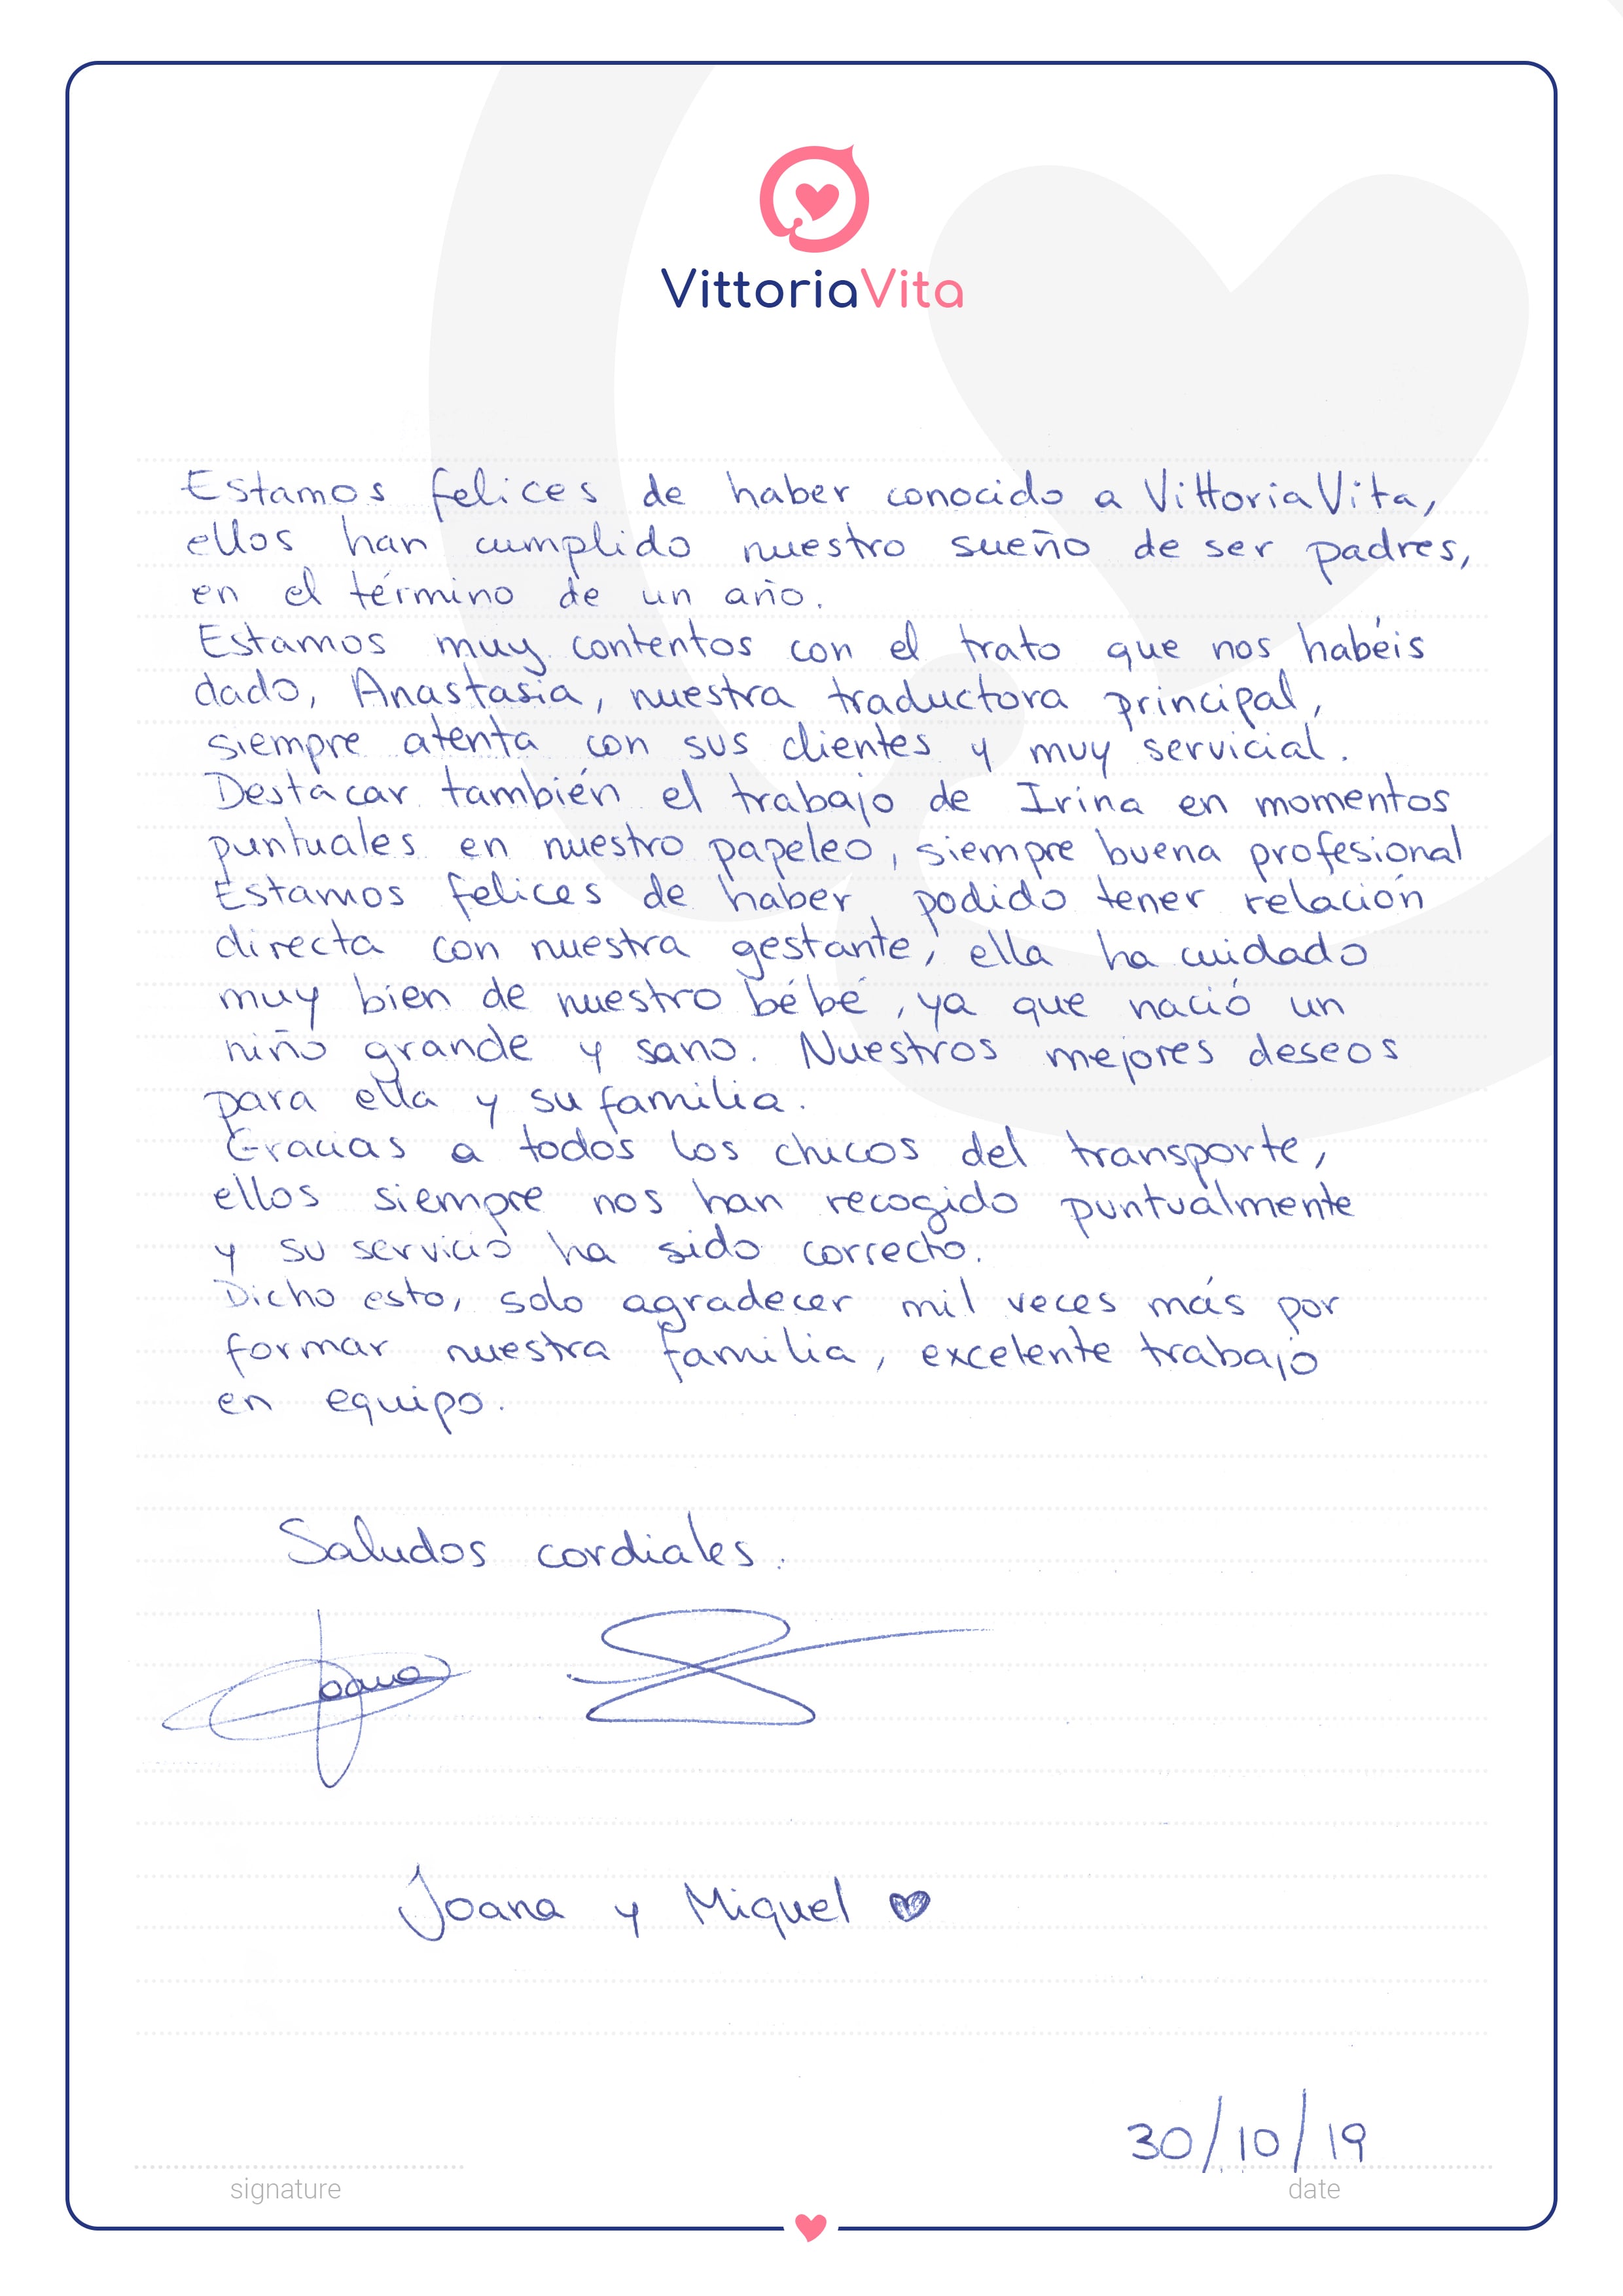 VittoriaVita
Estamos felices de haber conocido a VittoriaVita,
ellos han cumplido nuestro sueño de ser padres,
en el término de un año.
Estamos muy contentos con el trato que nos habéis
dado, Anastasia, nuestra traductora principal,
siempre atenta con sus clientes y muy servicial.
Destacar también el trabajo de Irina en momentos
puntuales en nuestro papeleo, siempre buena profesional
Estamos felices de haber podido tener relación
directa con nuestra gestante, ella ha cuidado
muy bien de nuestro bébé, ya que nació un
niño grande y sano. Nuestros mejores deseos
para ella y su familia.
Gracias a todos los chicos del transporte,
ellos siempre nos han recogido puntualmente
y su servicio ha sido correcto.
Dicho esto, solo agradecer mil veces más por
formar nuestra familia, excelente trabajo
en equipo.
Saludos cordiales.
Joana
Joana y Miquel
30/10/19
signature date